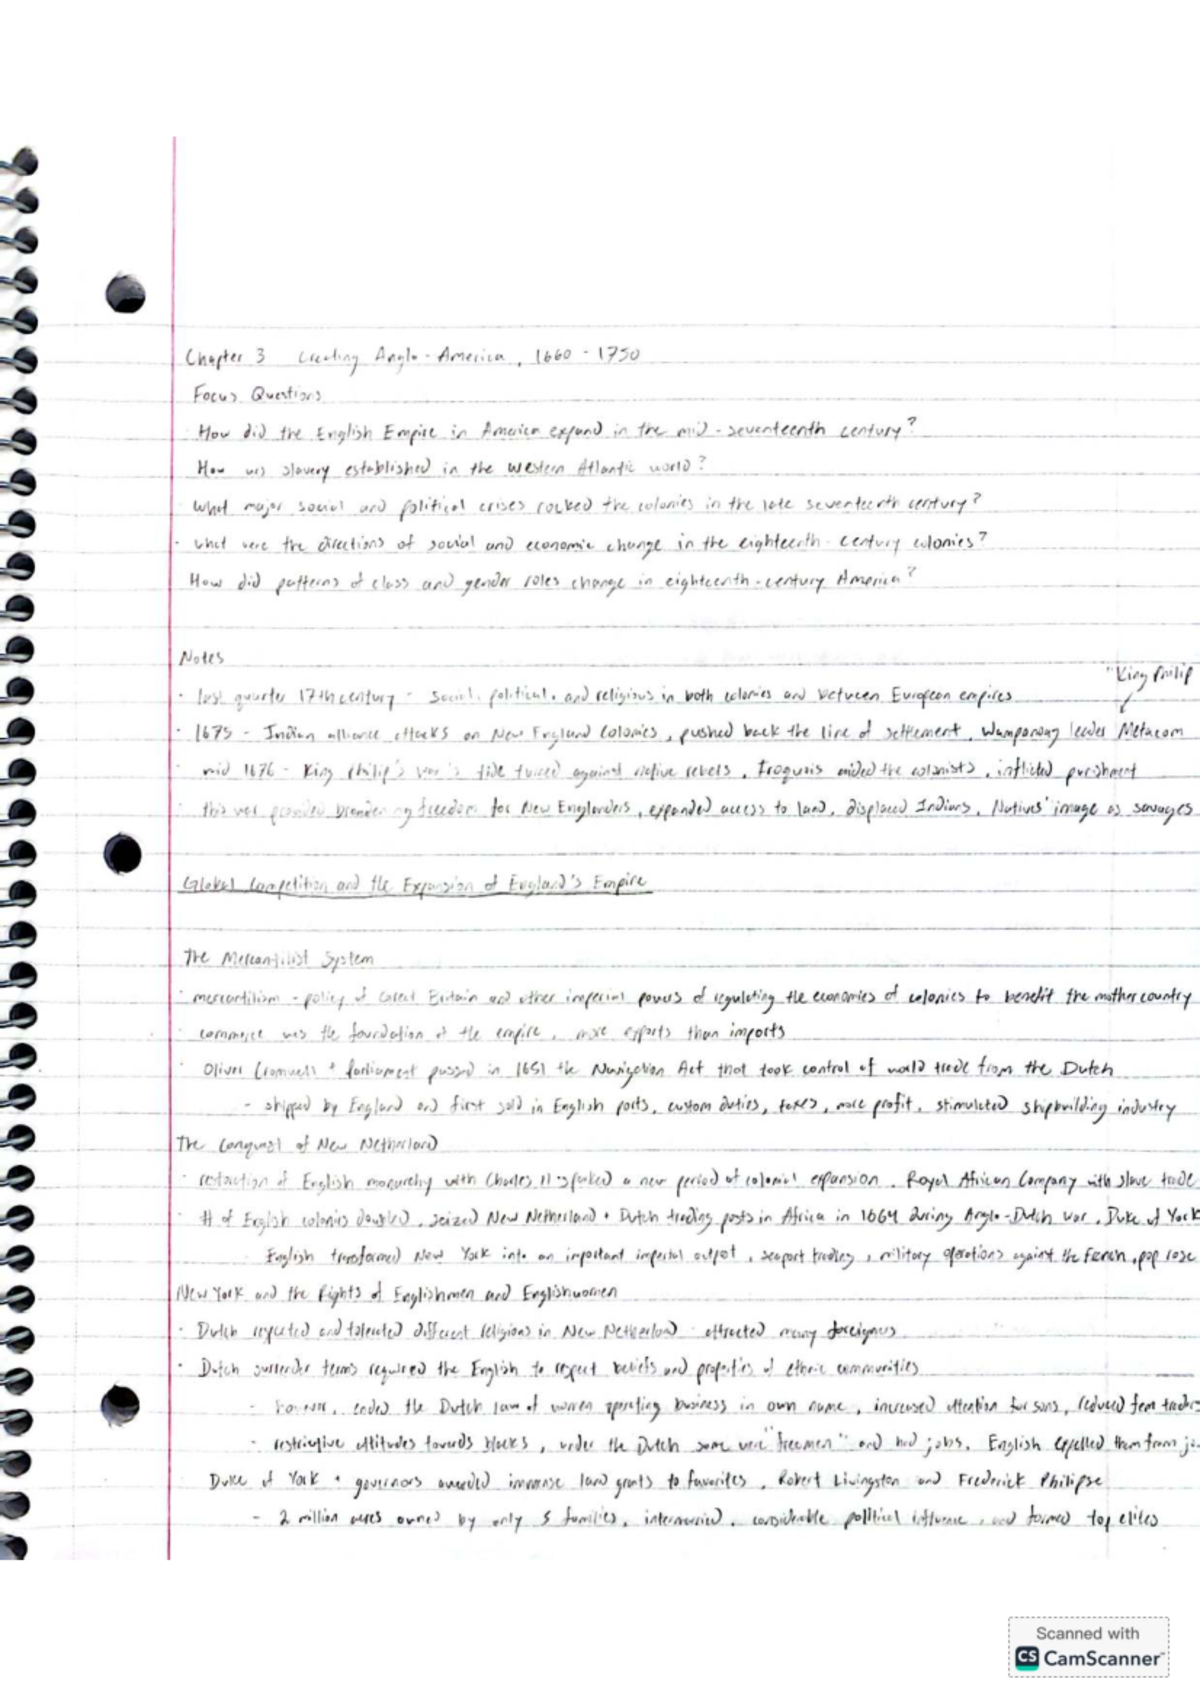 Chapter 3 Creating Anglo-America, 1660 - 1750
Focus Questions
How did the English Empire in America expand in the mid-seventeenth century?
How was slavery established in the Western Atlantic world?
What major social and political crises rocked the colonies in the late seventeenth century?
· What were the directions of social and economic change in the eighteenth-century colonies?
How did patterns of class and gender roles change in eighteenth-century America?
Notes
"King Philip
· last quarter 17th century - social, political, and religious in both colonies and between European empires
· 1675 - Indian alliance attacks on New England Colonies, pushed back the line of settlement, Wampanoag leader Metacom
mid 1676 - King Philip's war's tide turned against native rebels, Iroquois aided the colonists, inflicted punishment
this war broadening freedom for New Englanders, expanded access to land, displaced Indians, Natives' image as savages
Global Competition and the Expansion of England's Empire
The Mercantilist System
· mercantilism - policy of Great Britain and other imperial powers of regulating the economies of colonies to benefit the mother country
· commerce was the foundation of the empire, more exports than imports
· Oliver Cromwell + parliament passed in 1651 the Navigation Act that took control of world trade from the Dutch
- shipped by England and first sold in English ports, custom duties, taxes, more profit, stimulated shipbuilding industry
The Conquest of New Netherland
· restoration of English monarchy with Charles II sparked a new period of colonial expansion. Royal African Company with slave trade
· # of English colonies doubled, seized New Netherland + Dutch trading posts in Africa in 1664 during Anglo-Dutch war, Duke of York
English transformed New York into an important imperial outpost, seaport trading, military operations against the French, pop rose
New York and the Rights of Englishmen and Englishwomen
· Dutch and tolerated different religions in New Netherland attracted many foreigners
· Dutch surrender terms required the English to respect beliefs and properties of ethnic communities
- however, ended the Dutch law of women operating business in own name, increased attention for sons, reduced fem traders
- restrictive attitudes towards blacks, under the Dutch some were "freemen" and had jobs. English expelled them from
Duke of York + governors awarded immense land grants to favorites, Robert Livingston and Frederick Philipse
- 2 million acres owned by only 5 families, intermarried, considerable political influence, and formed top elites
Scanned with
CS CamScanner